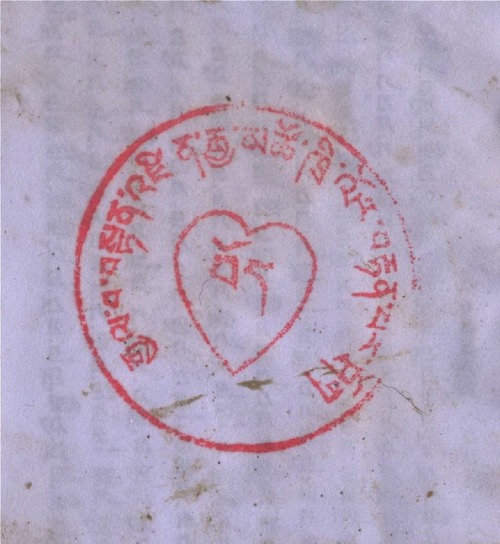 རྒྱལ་བ་བསྟན་འཛིན་རྒྱ་མཚོའི་ བརྟན་པར་ཤོག
བོད